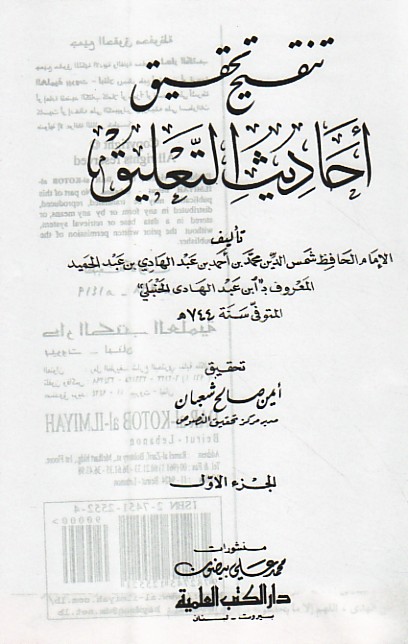 تنقيح تحقيق
أحاديث التعليق
تأليف
الإمام الحافظ شمس الدين محمد بن أحمد بن عبد الهادي بن عبد الحميد
المعروف بـ "ابن عبد الهادي الحنبلي"
المتوفى سنة ٧٤٤ هـ
تحقيق
أيمن صالح شعبان
مدير مركز تحقيق النصوص
الجزء الأول
منشورات
محمد علي بيضون
دار الكتب العلمية
بيروت - لبنان